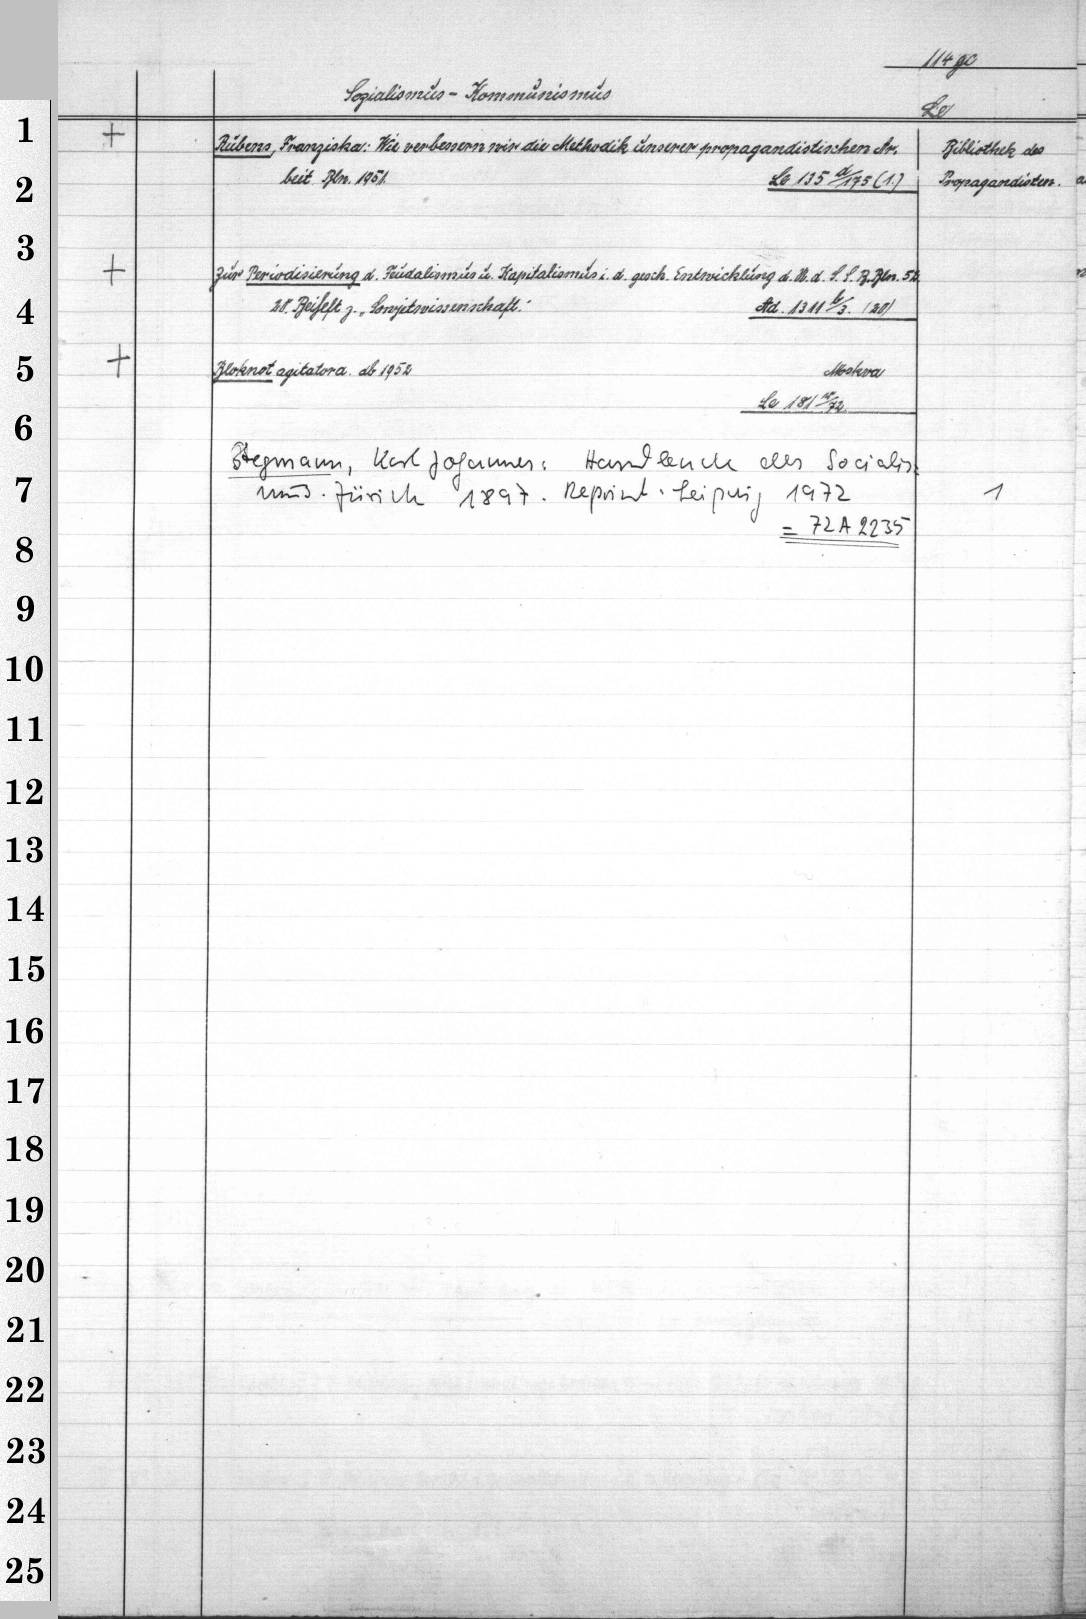 114 gc
Sozialismus - Kommunismus
Le
1
+ Rubens, Franziska: Wie verbessern wir die Methodik unserer propagandistischen Ar- Bibliothek des
2
beit Bln. 1951. Le 135 d/175 (1.) Propagandisten.
3
+ Zur Periodisierung d. Feudalismus u. Kapitalismus i. d. gesch. Entwicklung d. U.d.S.S.R. Bln. 52
4
20. Beiheft z. „Sowjetwissenschaft." Ad. 1311 b/3. (20)
5
+ Bloknot agitatora. ab 1952 Moskva
Le 181 /72.
6
Stegmann, Karl Johannes: Handbuch des Socialis-
7
mus. Zürich 1897. Reprint. Leipzig 1972 1
= 72 A 2235
8
9
10
11
12
13
14
15
16
17
18
19
20
21
22
23
24
25